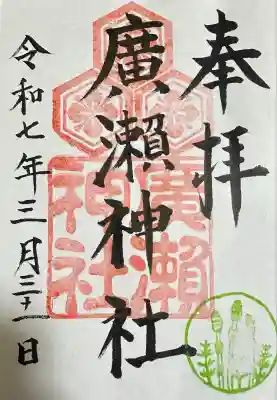 奉拝
廣瀬神社
廣瀬
神社
令和七年三月三十一日